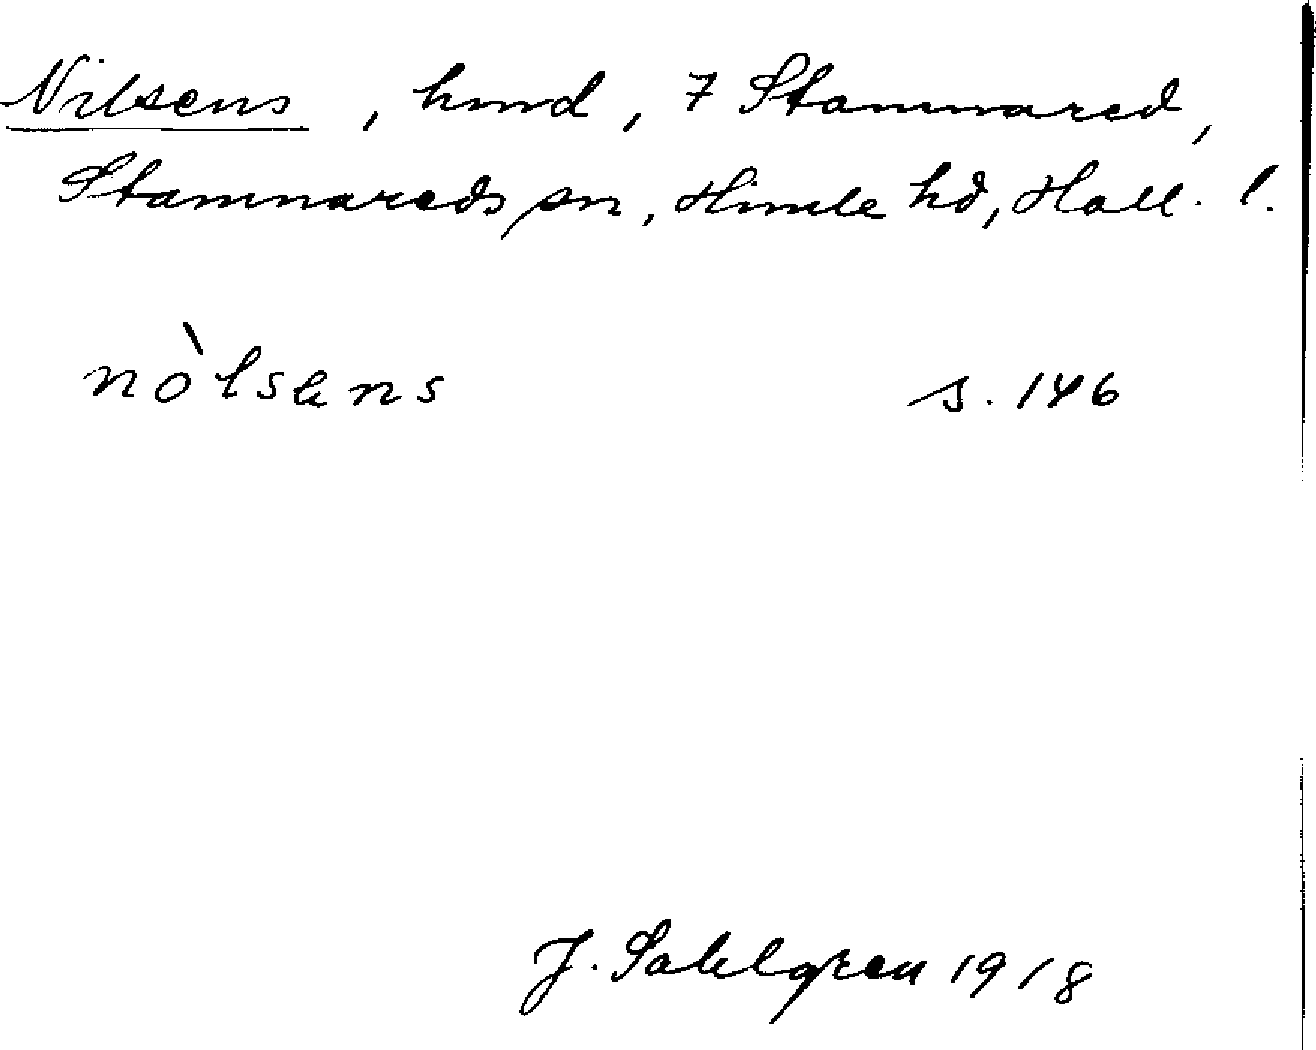 Nilsens, hmd, 7 Stamnared,
Stamnareds sn, Himle hd, Hall. l.
nòlsens s. 146
J. Sahlgren 1918